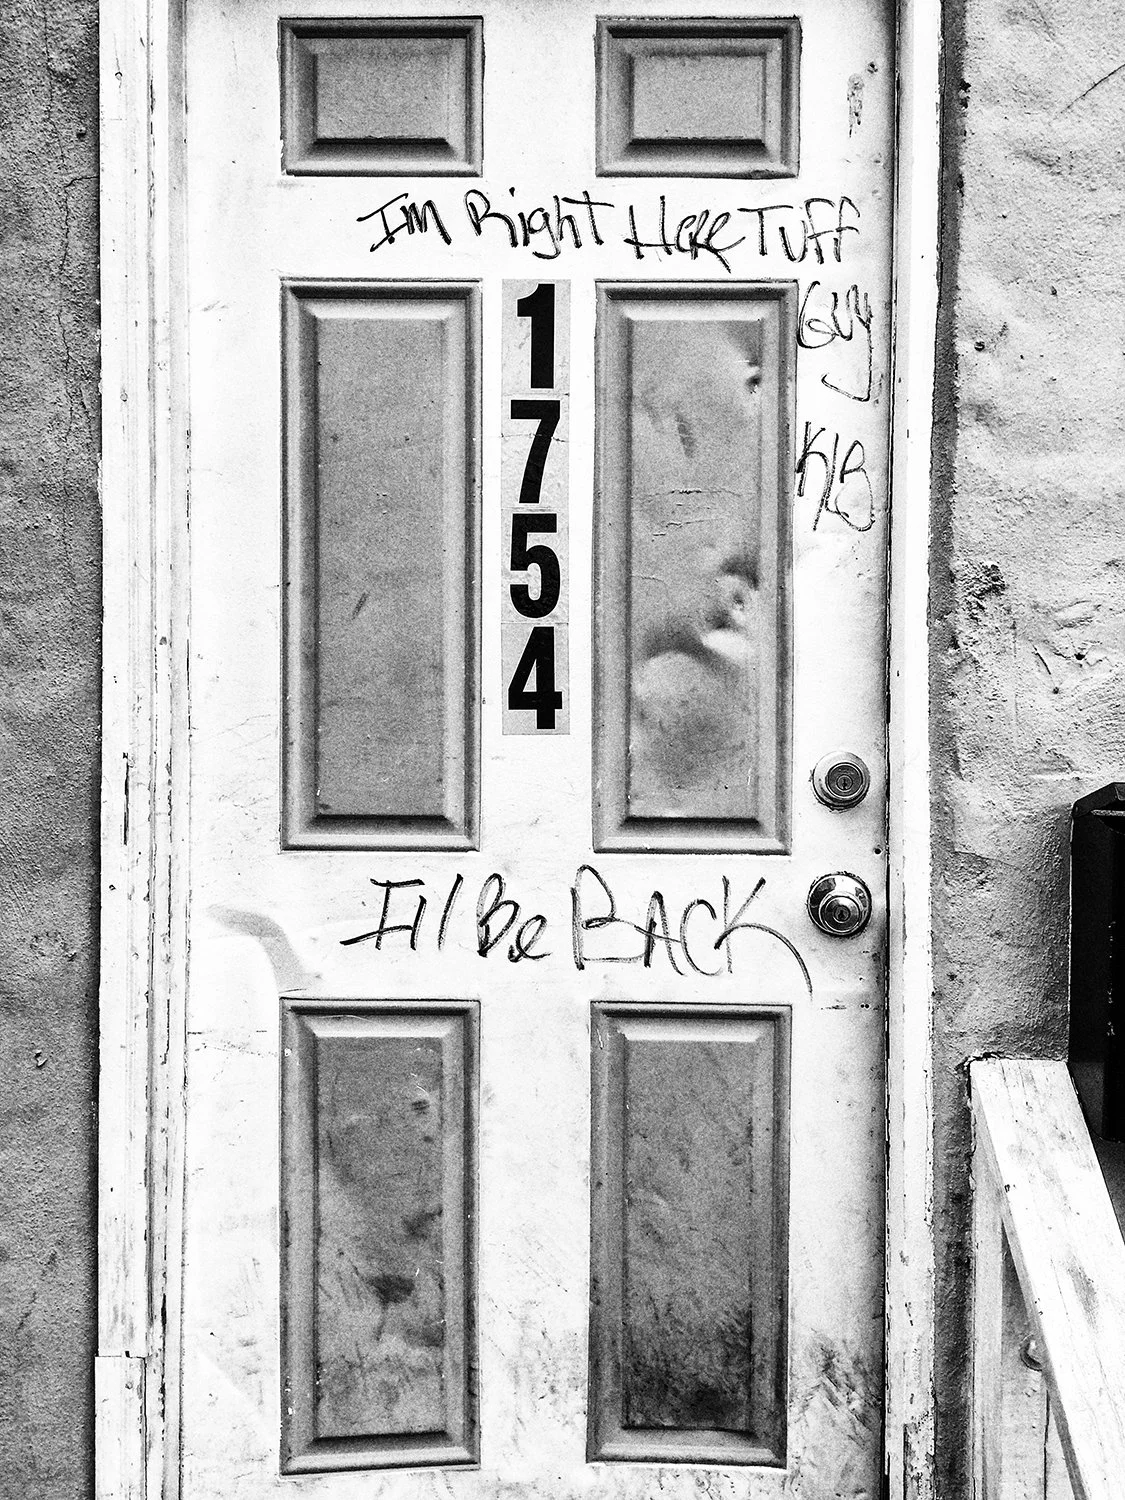 Im Right Here Tuff
Guy
K/B
1
7
5
4
I'll Be BACK